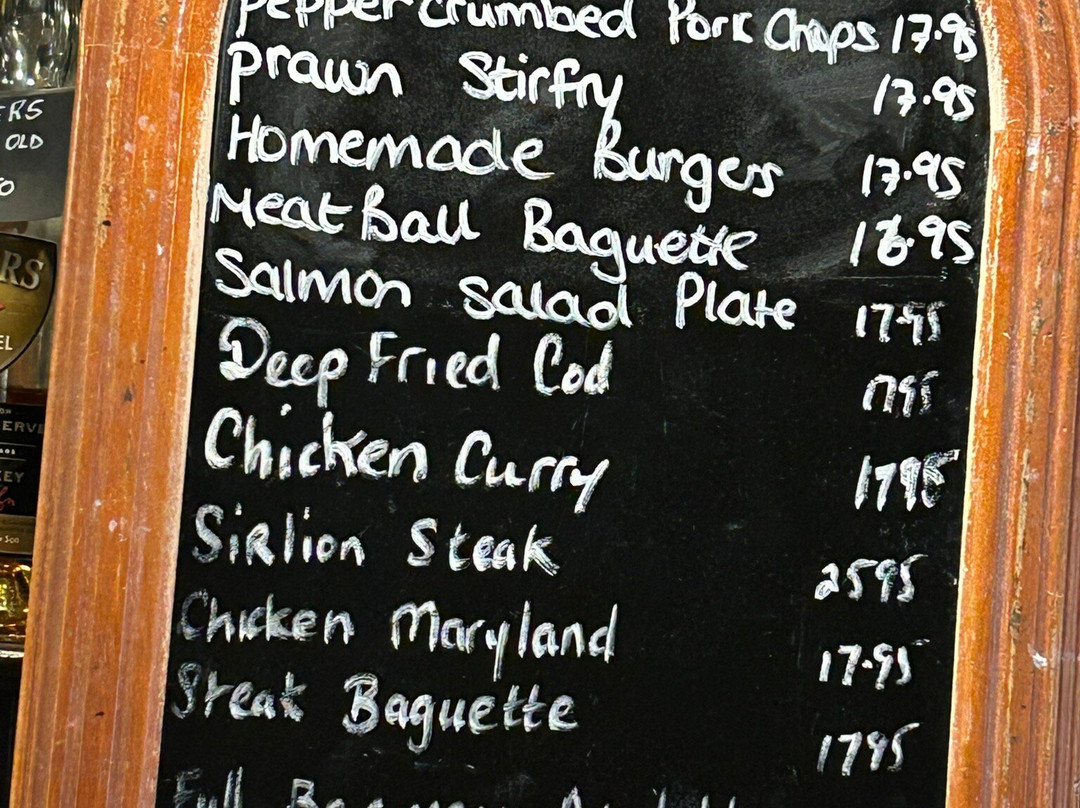 Pepper Crumbed Pork Chops 17.95
Prawn Stirfry 17.95
Homemade Burgers 17.95
Meat Ball Baguette 16.95
Salmon Salad Plate 17.95
Deep Fried Cod 1795
Chicken Curry 1795
Sirlion Steak 2595
Chicken Maryland 17.95
Steak Baguette 1795
Full
ERS
OLD
RS
EL
ERVE
KEY